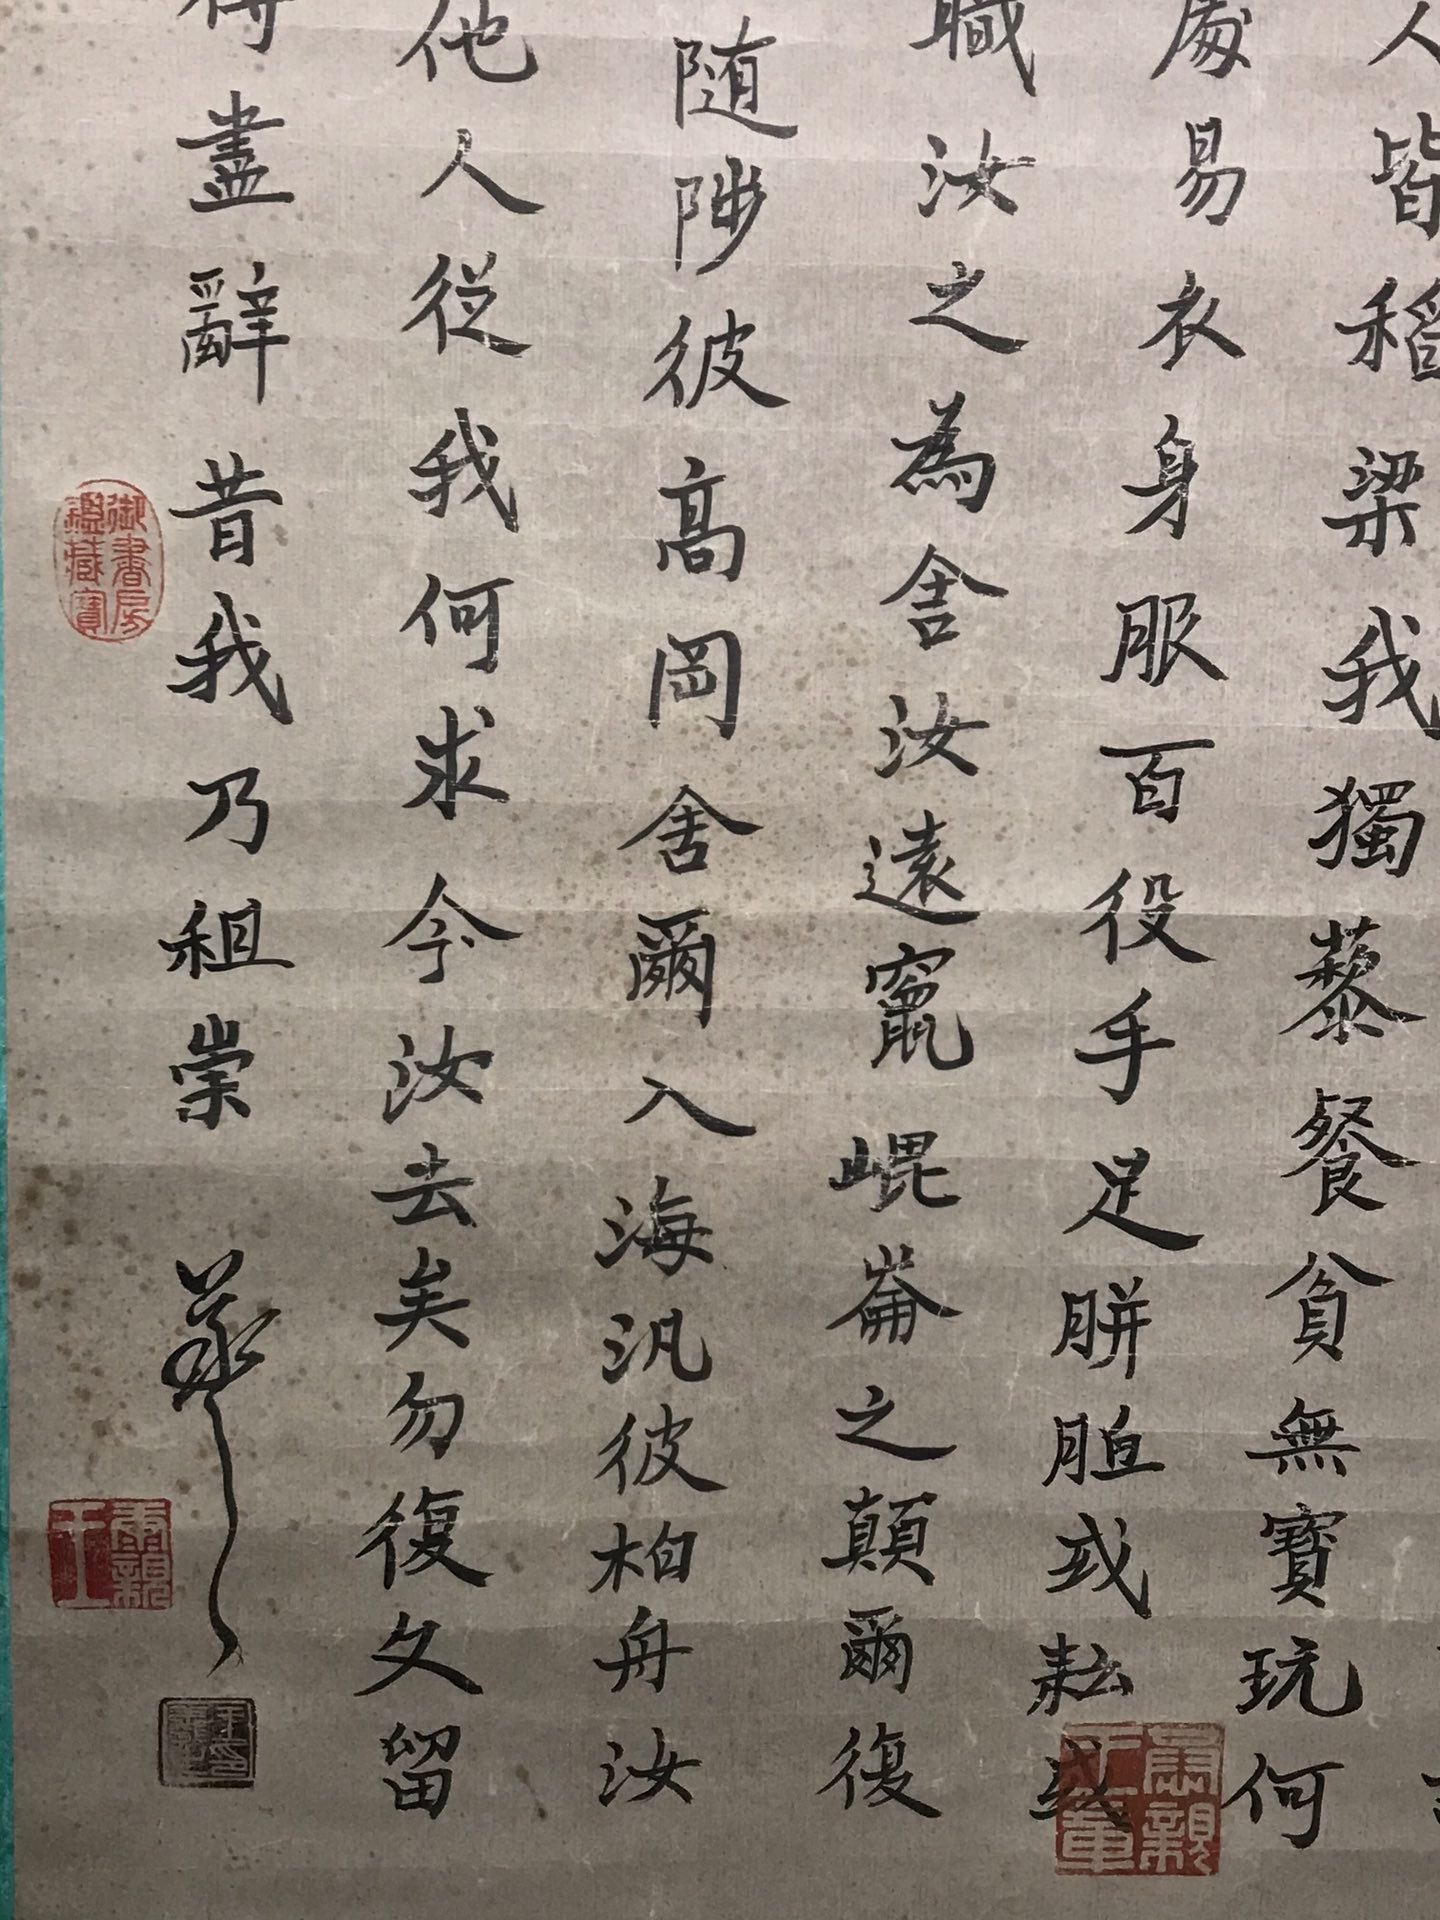 人皆稻粱我獨藜餐貧無寶玩何
處易衣身服百役手足胼胝或耘或
職汝之為舍汝遠竄崐崙之顛爾復
随陟彼高岡舍爾入海汎彼柏舟汝
他人從我何求今汝去矣勿復久留
得盡辭昔我乃祖崇
御書房鑑藏寶
肅親王章